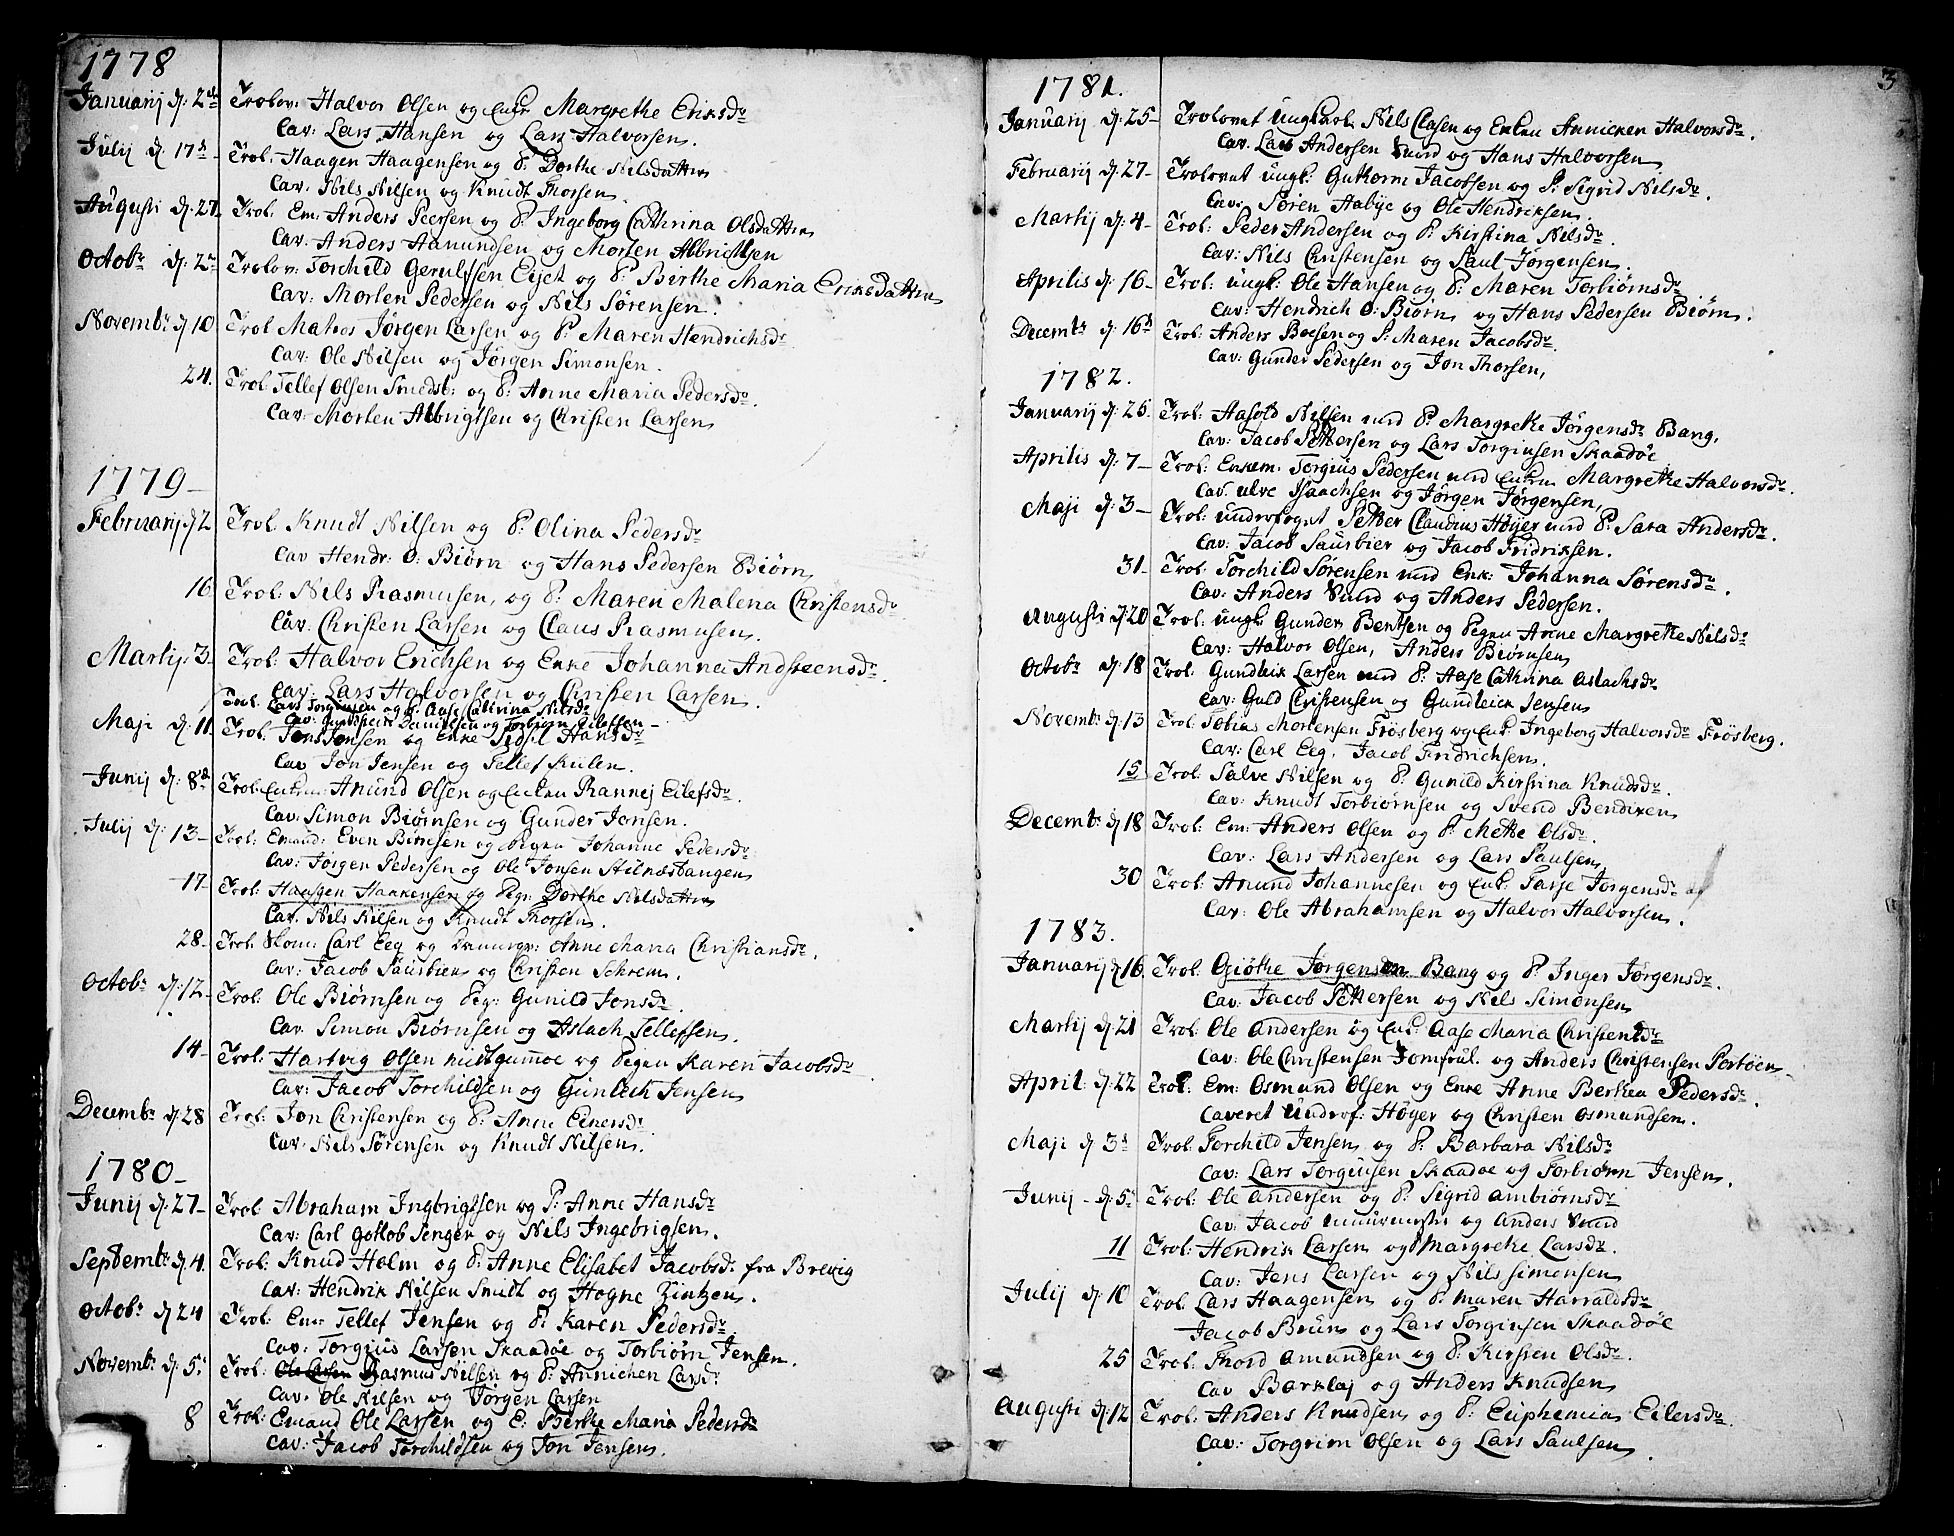 1778
Januarij d: 2den Trolov: Halvor Olsen og Enke Margrethe Eriksdr
Cav: Lars Hansen og Lars Halvorsen.
Julij d. 17d Trol: Haagen Haagensen og P: Dorthe Nilsdatter
Cav: Nils Nilsen og Knudt Thorsen.
Augusti d: 27 Trol: Em: Anders Peersen og P: Ingeborg Cathrina Olsdatter
Cav: Anders Aamundsen og Morten Albrictsen
Octobr d: 2n Trolov: Torchild Gerulfsen Eijet og P: Birthe Maria Eriksdatter
Cav: Morten Pedersen og Nils Sørensen.
Novembr d 10 Trol Matros Jørgen Larsen og P: Maren Hendrichsdr
Cav: Ole Nilsen og Jørgen Simonsen.
24. Trol: Tellef Olsen Smedsb: og P: Anne Maria Pedersdr.
Cav: Morten Albrigtsen og Christen Larsen
1779
Februarij d 2 Trol Knudt Nilsen og P: Olina Pedersdr
Cav Hendr: O: Biørn og Hans Pedersen Biørn
16 Trol: Nils Rasmusen, og P: Maren Malena Christensdr
Cav. Christen Larsen og Claus Rasmusen.
Martij. 3. Trol: Halvor Erichsen og Enke Johanna Andstensdr.
Cav: Lars Halvorsen og Christen Larsen.
Trol. Lars Torginsen og P. Aase Cathrina Nilsdr
Cav: Gundheik Danielsen og Torbiørn Eilefsen
Maji d: 11. Trol: Jens Jensen og Enke Sidsil Hansdr
Cav Jon Jensen og Tellef Kulen.
Junij d: 8d Trol: Enkem: Anund Olsen og Enken Rannej Eilefsdr.
Cav: Simon Biørnsen og Gunder Jonsen.
Julij d: 13 Trol: Emand: Even Børresen og Pigen Johanne Pedersdr
Cav: Jørgen Pedersen og Ole Jonsen Stilnæstangen
17 Trol: Haagen Haakensen og Pigr: Dorthe Nilsdatter
Cav. Nils Nilsen og Knudt Thorsen.
28 Trol: Skom: Carl Eeg og Anne Maria Christiansdr.
Cav: Jacob Sausbier og Christen Schrem.
Octobr d: 12 Trol: Ole Biørnsen og Pig: Gunild Jonsdr.
Cav. Simon Biørnsen og Aslach Tellefsen.
14 Trol: Hartvig Olsen Midtgummoe og Pigen Karen Jacobsdr
Cav: Jacob Torchildsen og Gunleich Jensen
Decembr d 28 Trol: Jon Christensen og P: Anne Einersdr.
Cav: Nils Sørensen og Knudt Nilsen.
1780
Junij d: 27 Trol Abraham Ingbrigtsen og P: Anne Hansdr
Cav: Carl Gotlob Senger og Nils Ingebrigsen.
Septembr d. 4. Trol: Knud Holm og P: Anne Elisabet Jacobsdr. fra Brevig
Cav: Hendrik Nilsen Smidt og Hogne Zintzen.
Octobr d 24 Trol: Em: Tellef Jensen og P: Karen Pedersdr
Cav: Torgius Larsen Skaadøe og Torbiørn Jensen.
Novembr d: 5: Trol: Ole Larsen Rasmus Nilsen og P: Annichen Larsdr
Cav: Ole Nilsen og Jørgen Larsen
8 Trol: Emand Ole Larsen og E: Berthe Maria Pedersdr
Cav: Jacob Torchildsen og Jon Jensen.
3
1781.
Januarij d: 25 Trolovet Ungkarl Nils Clasen og Enken Annicken Halvorsdr.
Cav. Lars Andersen Lund og Hans Halvorsen
Februarij d: 27 Trolovet Ungk: Guthorm Jacobsen og P: Sigrid Nilsdr.
Cav: Søren Habije og Ole Hendriksen.
Martij d: 4 Trol: Peder Andersen og P: Kirstina Nilsdr.
Cav: Nils Christensen og Paul Jørgensen.
Aprilis d: 16 Trol: Ungk: Ole Hansen og P: Maren Torbiørnsdr
Cav: Hendrich O: Biørn og Hans Pedersen Biørn.
Decembr d: 16d Trol: Anders Boesen og P: Maren Jacobsdr.
Cav: Gunder Pedersen og Jon Thorsen,
1782.
Januarij d: 25 Trol: Aasold Nilsen med P: Margrethe Jørgensdr Bang.
Cav: Jacob Pettersen og Lars Torginsen Skaadøe
Aprilis d: 7 Trol: Enkem: Torgius Pedersen med Enken Margrethe Halvorsdr.
Cav. Ulve Isaachsen og Jørgen Jørgensen,
Maji d: 3 Trol: Underfoget Petter Claudius Høijer med P: Sara Andersdr.
Cav: Jacob Sausbier og Jacob Fridriksen.
31 Trol: Torchild Sørensen med Enk: Johanna Sørensdr.
Cav: Anders Lund og Anders Pedersen.
Augusti d 20 Trol. Ungk: Gunder Bentsen og Pigen Anne Margrethe Nilsdr
Cav: Halvor Olsen, Anders Biørnsen
Octobr d: 18 Trol: Gundleik Larsen med P: Aase Cathrina Aslachsdr
Cav: Guld Christensen og Gundleick Jensen
Novembr d: 13 Trol: Tobias Mortensen Frösberg og Enk: Ingeborg Halvorsdr Frösberg.
Cav: Carl Eeg, Jacob Fridrichsen.
15 Trol: Salve Nilsen og P: Gunild Kirstina Knudsdr.
Cav: Knudt Torbiørnsen og Svend Bendixen
Decembr d 18 Trol: Em: Anders Olsen og P: Mette Olsdr.
Cav: Lars Andersen og Lars Paulsen
30 Trol: Anund Johannesen og Enk: Tarje Jørgensdr
Cav: Ole Abrahamsen og Halvor Halvorsen.
1783.
Januarij d 16. Trol: Giøthe Jørgensen Bang og P: Inger Jørgensdr.
Cav: Jacob Pettersen og Nils Simonsen
Martij d: 21 Trol: Ole Andersen og Enk: Aase Maria Christensdr
Cav: Ole Christensen Jomfrul. og Anders Christensen Portøen
April: d: 22 Trol Em: Osmund Olsen og Enke Anne Berthea Pedersdr.
Caveret Underf: Høyer og Christen Osmundsen.
Maji d 3d Trol: Torchild Jensen og P: Barbara Nilsdr
Cav: Lars Torginsen Skaadøe og Torbiørn Jensen.
Junij d: 5 Trol: Ole Andersen og P: Sigrid Ambiørnsdr
Cav: Jacob Muurmester og Anders Lund
11 Trol: Hendrik Larsen og P Margrethe Larsdr.
Cav: Jens Larsen og Nils Simonsen
Julij d: 10 Trol: Lars Haagensen og P: Maren Harraldsdr
Jacob Bruun og Lars Torginsen Skaadøe
25 Trol: Thord Amundsen og P: Kirsten Olsdr.
Cav Barklaj og Anders Knudsen
Augusti d: 12 Trol: Anders Knudsen og P: Euphemia Eilersdr.
Cav: Torgrim Olsen og Lars Paulsen